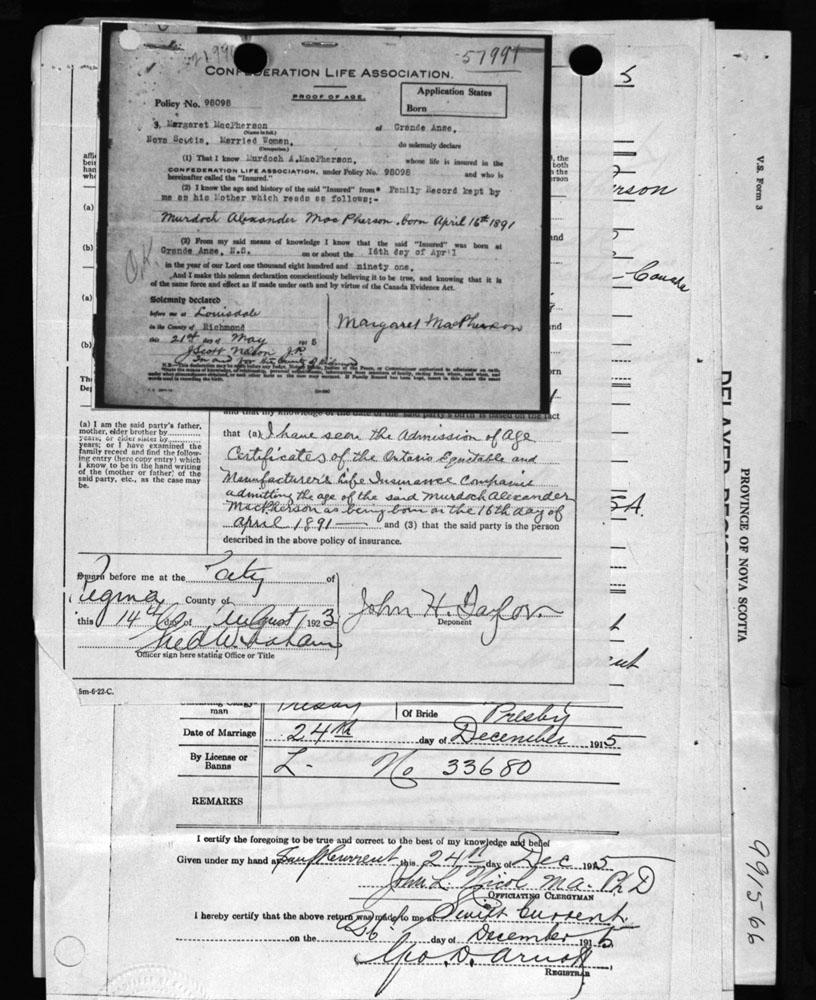 57991
CONFEDERATION LIFE ASSOCIATION.
PROOF OF AGE.
Application States
Born
Policy No. 98098
I, Margaret MacPherson of Grande Anse,
(Name in full.)
Nova Scotia, Married Woman, do solemnly declare
(Occupation.)
(1) That I know Murdoch A. MacPherson, whose life is insured in the
CONFEDERATION LIFE ASSOCIATION, under Policy No. 98098 and who is
hereinafter called the "Insured."
(2) I know the age and history of the said "Insured" from Family Record kept by
me as his Mother which reads as follows:-
Murdoch Alexander MacPherson, born April 16th 1891
(3) From my said means of knowledge I know that the said "Insured" was born at
Grande Anse, N.S. on or about the 16th day of April
in the year of our Lord one thousand eight hundred and ninety one.
And I make this solemn declaration conscientiously believing it to be true, and knowing that it is
of the same force and effect as if made under oath and by virtue of the Canada Evidence Act.
O.K.
Solemnly declared
before me at Louisdale
in the County of Richmond
this 21st day of May 1915
J.P.
Margaret MacPherson
(a) I am the said party's father,
mother, elder brother by
years, or elder sister by
years; or I have examined the
family record and find the follow-
ing entry (here copy entry) which
I know to be in the hand writing
of the (mother or father) of the
said party, etc., as the case may
be.
that (a) I have seen the Admission of Age
Certificates of the Ontario Equitable and
Manufacturer's Life Insurance Companies
admitting the age of the said Murdoch Alexander
MacPherson as being born on the 16th day of
April 1891 and (3) that the said party is the person
described in the above policy of insurance.
Sworn before me at the City of
Regina County of
this 14th day of August 1923
John H. Taylor
Deponent
Officer sign here stating Office or Title
5m-6-22-C.
man
Presby
Of Bride Presby
Date of Marriage 24th day of December 1915
By License or
Banns
L- No 33680
REMARKS
I certify the foregoing to be true and correct to the best of my knowledge and belief
Given under my hand at Swift Current this 24th day of Dec 1915
John L. Nicol M.A. Ph D
OFFICIATING CLERGYMAN
I hereby certify that the above return was made to me at Swift Current
on the day of December 1915
Geo. D. Arnott
REGISTRAR
Canada
V.S. Form 3
PROVINCE OF NOVA SCOTIA
991566